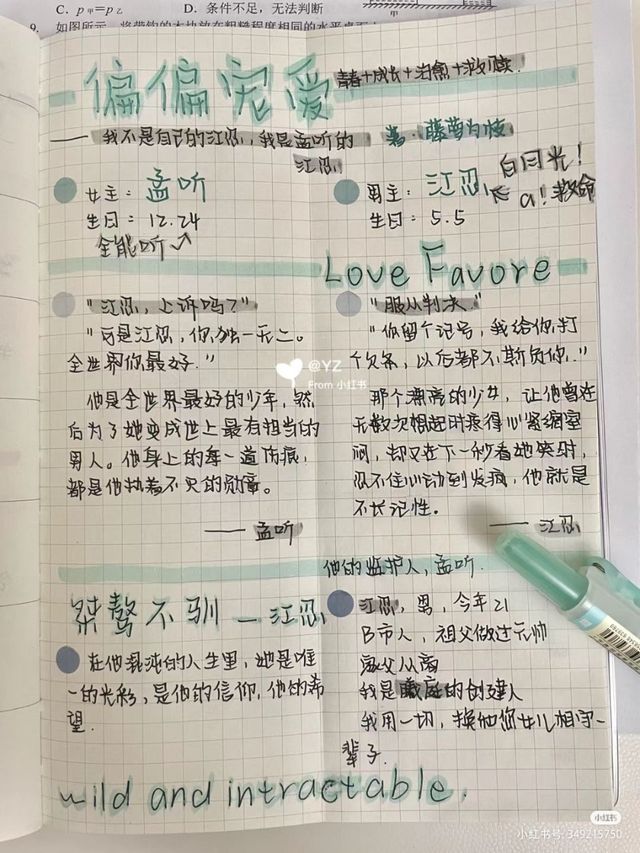 C. p甲=p乙 D. 条件不足，无法判断
9. 如图所示
甲
偏偏宠爱
青春+成长+治愈+救赎.
—— 我不是自己的江忍，我是孟听的
江忍
著·藤萝为枝
女主：孟听
生日：12.24
全能听
男主：江忍
白月光！
a！救命
生日：5.5
Love Favore
"江忍，上诉吗？"
"可是江忍，你独一无二。
全世界你最好."
他是全世界最好的少年，然
后为了她变成世上最有担当的
男人。他身上的每一道伤痕，
都是他执着不灭的勋章。
—— 孟听
"服从判决."
"你留个记号，我给你打
个欠条，以后都不欺负你."
那个漂亮的少女，让他曾经
无数次想起时疼得心紧缩窒
闷，却又在下一秒看她笑时，
忍不住心动到发疯，他就是
不长记性。
—— 江忍
他的监护人，孟听.
桀骜不驯 — 江忍
在他混沌的人生里，她是唯
一的光彩，是他的信仰，他的希
望.
江忍，男，今年21
B市人，祖父做过元帅
家父从商
我是 的创建人
我用一切，换他您女儿相守一
辈子.
wild and intractable.
@YZ
From 小红书
小红书
小红书号: 349215750